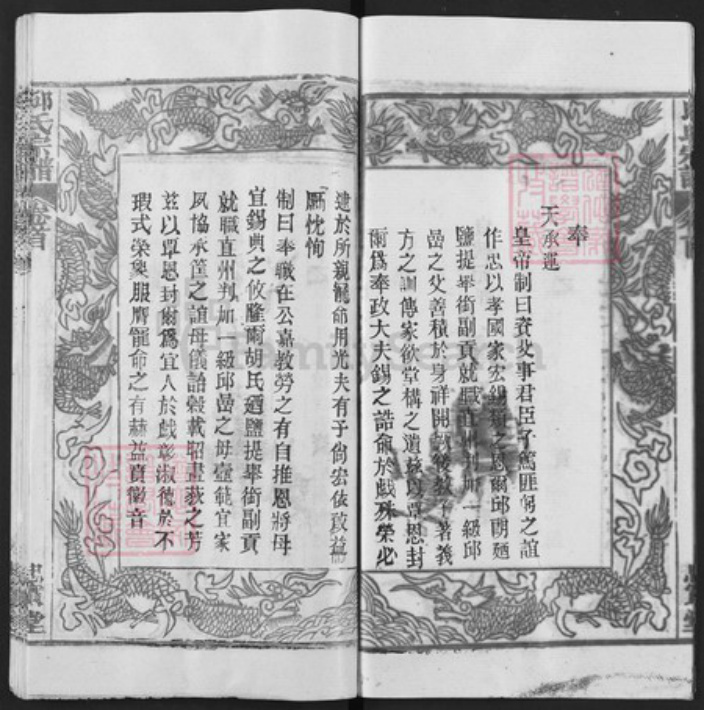 奉
天承運
皇帝制曰資父事君臣子篤匪躬之誼
作忠以孝國家宏錫類之恩爾邱明廼
鹽提舉銜副貢就職直州判加一級邱
嵒之父善積於身祥開厥後教子著義
方之訓傳家欲堂構之遺茲以覃恩封
爾爲奉政大夫錫之誥命於戲殊榮必
逮於所親寵命用光夫有子尙宏依啟益
勵忱恂
制曰奉職在公嘉教勞之有自推恩將母
宜錫典之攸隆爾胡氏廼鹽提舉銜副貢
就職直州判加一級邱嵒之母壼範宜家
夙協承筐之誼母儀詒穀載昭畫荻之芳
茲以覃恩封爾爲宜人於戲彰淑德於不
瑕式榮象服膺寵命之有赫益賁徽音
邱氏宗譜
卷首
堂
FamilySearch